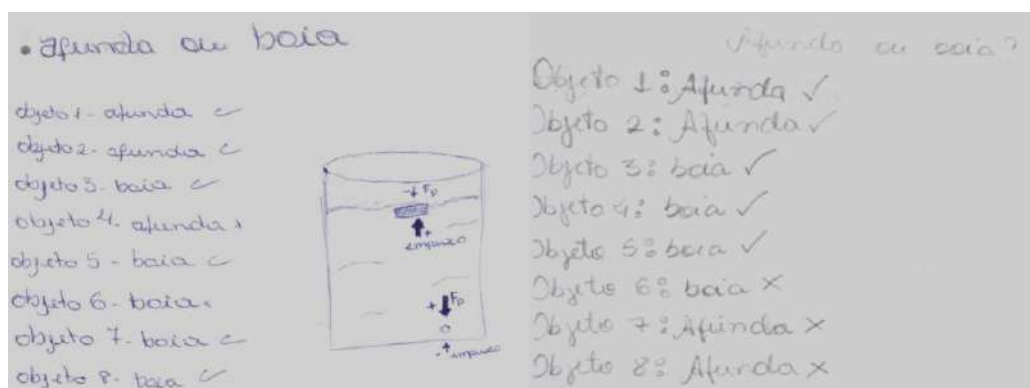 • afunda ou boia
objeto 1 - afunda ✓
objeto 2 - afunda ✓
objeto 3 - boia ✓
objeto 4 - afunda x
objeto 5 - boia ✓
objeto 6 - boia x
objeto 7 - boia ✓
objeto 8 - boia ✓
- Fp
+
empuxo
+ Fp
- empuxo
Afunda ou boia?
Objeto 1: Afunda ✓
Objeto 2: Afunda ✓
Objeto 3: boia ✓
Objeto 4: boia ✓
Objeto 5: boia ✓
Objeto 6: boia ×
Objeto 7: Afunda ×
Objeto 8: Afunda ×